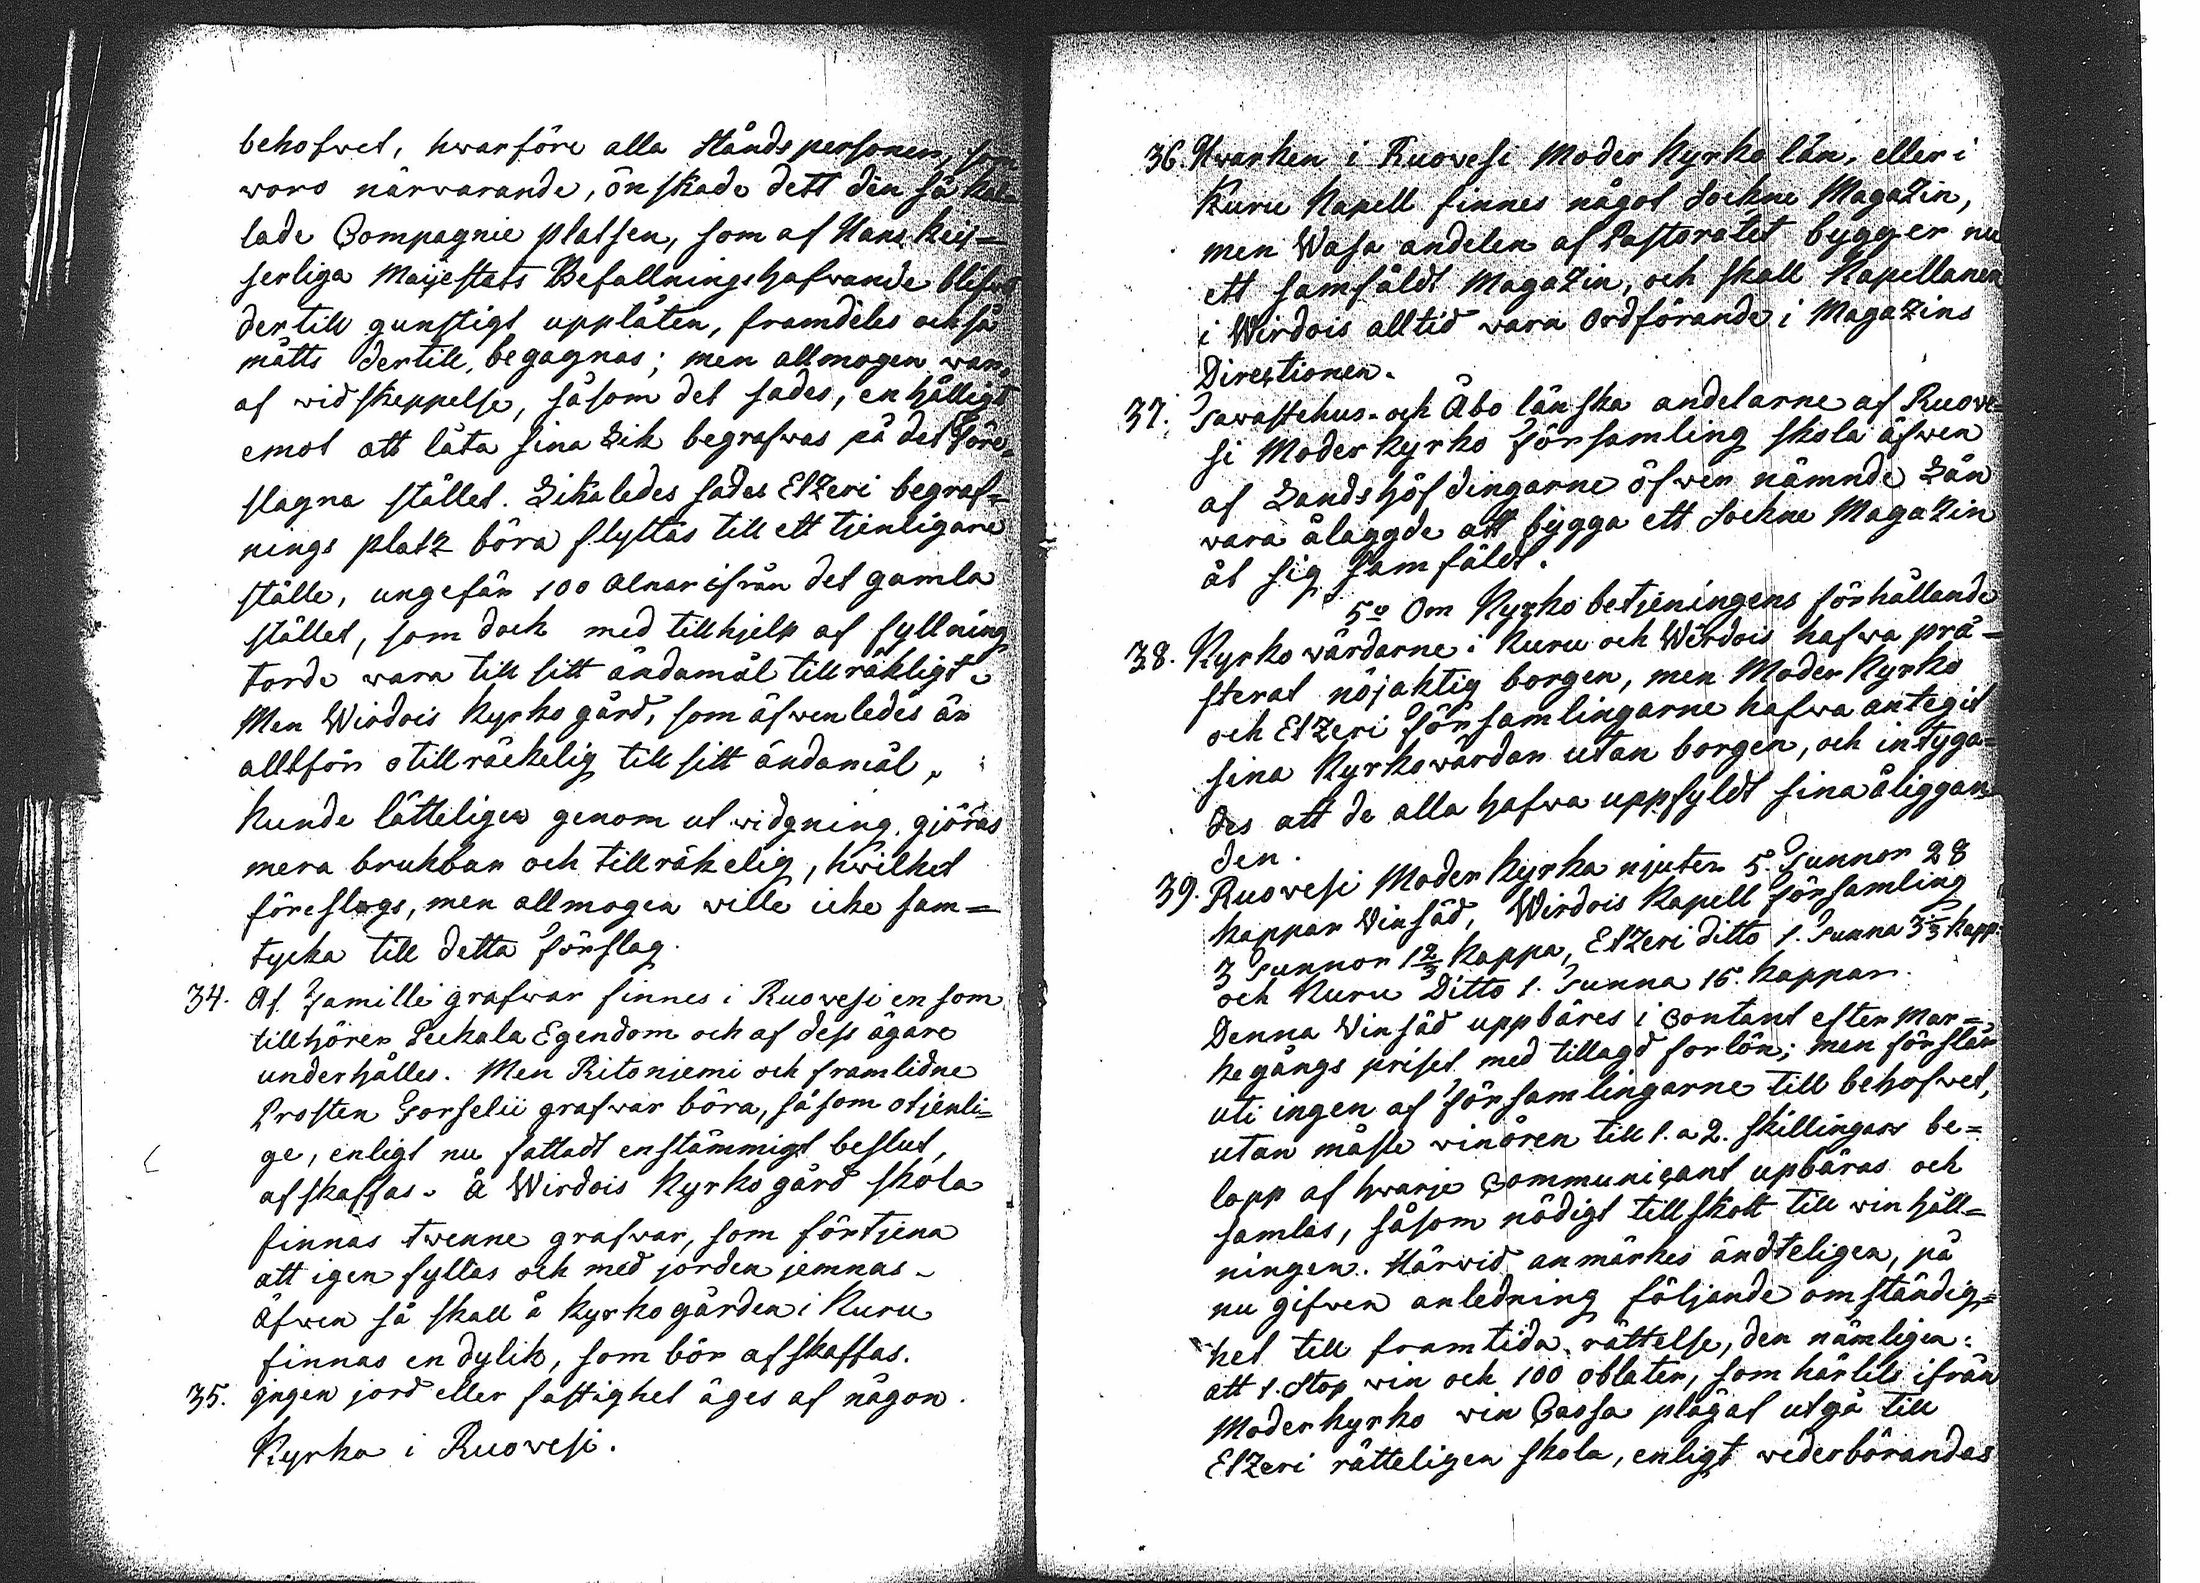 behofwet, hwarföre alla Ståndspersoner, som
woro närwarande, önskade dett den så kal-
lade Compagnie platsen, som af Hans Kej=
serliga Maijestäts Befallningshafwande blifwit
dertill gunstigt upplåten, framdeles också
måtts dertill begagnas; men allmogen war,
af widskeppelse, såsom det sades, enhälligt
emot att låta sina Lik begrafwas på det före,
slagna stället. Likaledes sades Etzeri begraf=
nings platz böra flyttas till ett tjenligare
ställe, ungefär 100 alnar ifrån det gamla
stället, som dock med tillhjelp af fyllning
torde wara till sitt ändamål tillräkligt.
Men Wirdois Kyrkogård, som äfwenledes är
alltför otillräckelig till sitt ändamål,
kunde lätteligen genom utwidgning göras
mera brukbar och tillräkelig, hwilket
föreslogs, men allmogen wille icke sam=
tycka till detta förslag.
34. Af Famille grafwar finnes i Ruowesi en som
tillhörer Pekkala Egendom och af dess ägare
underhålles. Men Ritoniemi och framlidne
Prosten Forselii grafwar böra, såsom otjenli=
ge, enligt nu fattadt enstämmigt beslut,
afskaffas. Å Wirdois Kyrkogård skola
finnas twenne grafwar, som förtjena
att igenfyllas och med jorden jemnas.
Äfwen så skall å Kyrkogården i Kuru
finnas en dylik, som bör afskaffas.
35. Ingen jord eller fastighet äges af någon
Kyrka i Ruowesi.
36. Hwarken i Ruowesi Moder Kyrko län, eller i
Kuru Kapell finnes något Sockne Magazin,
men Wasa andelen af Pastoratet bygger nu
ett samfäldt Magazin, och skall Kapellanen
i Wirdois alltid wara Ordförande i Magazins
Directionen.
37. Tawastehus- och Åbo länska andelarne af Ruowe-
si Moder Kyrko Församling skola äfwen
af Landshöfdingarne öfwer nämnde Län
wara ålaggde att bygga ett Sockne Magazin
åt sig samfäldt.
5º Om Kyrko betjeningens förhållande
38. Kyrkowärdarne i Kuru och Wirdois hafwa prä-
sterat nöjaktig borgen, men Moder Kyrko
och Etzeri Församlingarne hafwa antagit
sina Kyrkowärdar utan borgen, och intyga=
des att de alla hafwa uppfyldt sina åliggan=
den.
39. Ruowesi Moder Kyrka njuter 5. Tunnor 28
kappar Vinsäd, Wirdois Kapell Församling
3 Tunnor 1 2/3 kappa, Etzeri ditto 1. Tunna 3 1/3 kapp:
och Kuru Ditto 1. Tunna 16. kappar.
Denna Vinsäd uppbäres i Contant efter Mar=
kegångs priset med tillagd forlön; men förslår
uti ingen af Församlingarne till behofwet,
utan måste winören till 1. a 2. skillingars be=
lopp af hwarje Communicant upbäras och
samlas, såsom nödigt tillskott till winhåll=
ningen. Härwid anmärkes ändteligen, på
nu gifwen anledning följande omständig=
het till framtida rättelse, den nämligen:
att 1. Stop win och 100 oblater, som härtils ifrån
Moderkyrko win Cassa plägat utgå till
Etzeri rätteligen skola, enligt wederbörandas